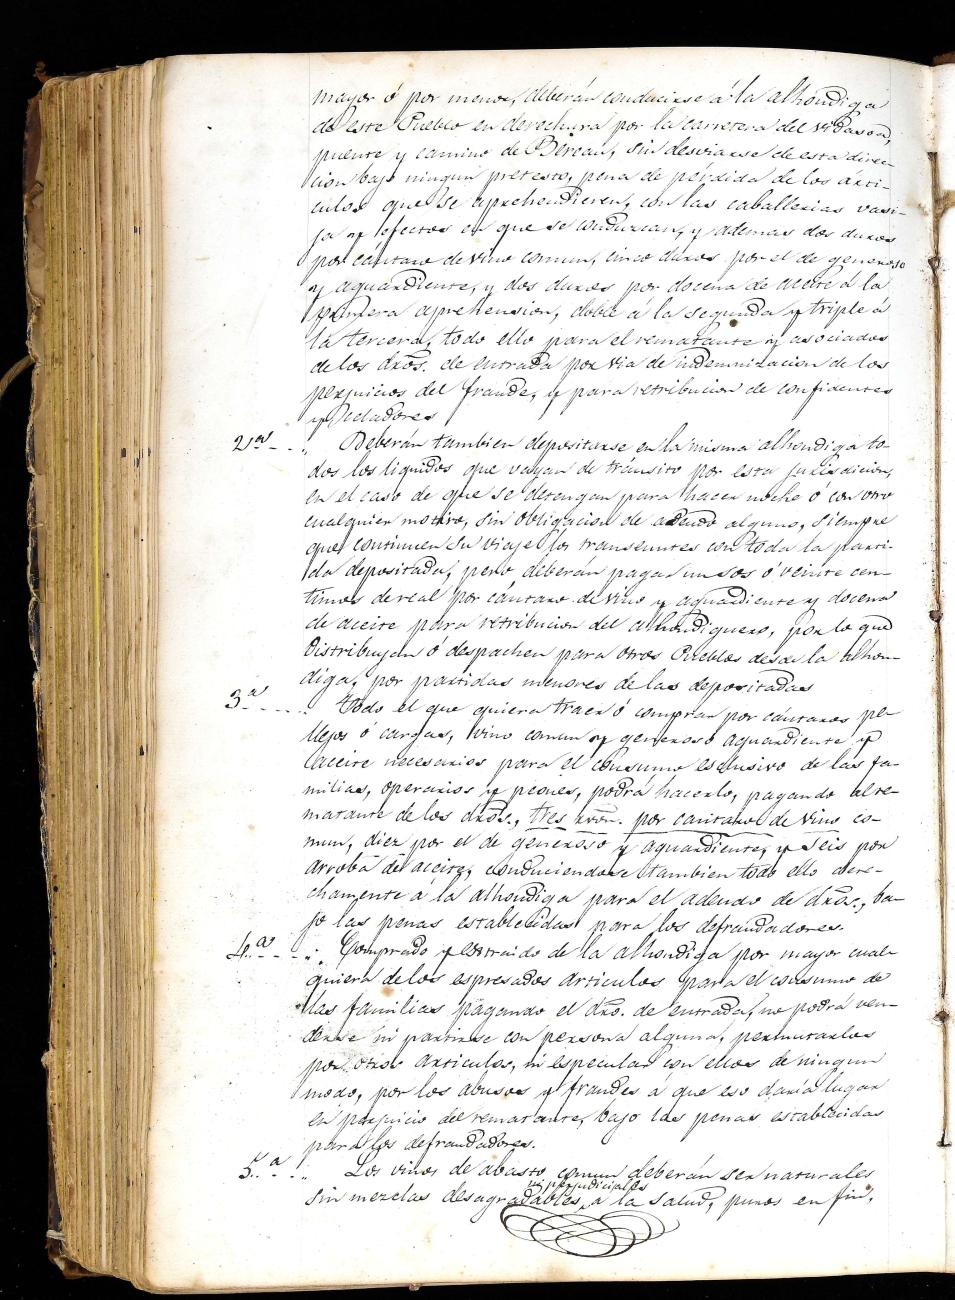 mayor ó por menor, deberán conducirse á la alhondiga
de este Pueblo en derechura por la carretera del Vidasoa,
puente y camino de Bereau, sin desviarse de esta direc-
cion bajo ningun pretesto, pena de pérdida de los árti-
culos que se aprehendieren, con las caballerias vasi-
ja y efectos en que se conduzcan, y ademas dos duros
por cántaro de vino comun, cinco duros por el de generoso
y aguardiente, y dos duros por docena de aceite á la
primera aprehension, doble á la segunda y triple á
la tercera, todo ello para el rematante y asociados
de los dr̃os. de entrada por via de indemnizacion de los
perjuicios del fraude, y para retribucion de confidentes
y Celadores
2ª - - „ Deberán tambien depositarse en la misma alhondiga to-
dos los liquidos que vayan de tránsito por esta jurisdicion,
en el caso de que se detengan para hacer noche ó con otro
cualquier motivo, sin obligacion de adeudo alguno, siempre
que continuen su viaje los transeuntes con toda la parti-
da depositada, pero deberán pagar un sos ó veinte cen-
timos de real por cántaro de vino y aguardiente y docena
de aceite para retribucion del alhondiguero, por lo que
distribuyan ó despachen para otros Pueblos desde la alhon-
diga, por partidas menores de las depositadas
3ª - - - - . Todo el que quiera traer ó comprar por cántaros pe-
llejos ó cargas, vino comun y generoso aguardiente y
aceite necesarios para el consumo esclusivo de las fa-
milias, operarios y peones, podrá hacerlo, pagando al re-
matante de los dr̃os., tres rr̃on. por cantaro de vino co-
mun, diez por el de generoso y aguardiente, y seis por
arroba de aceite, conduciendose tambien todo ello dere-
chamente á la alhondiga para el adeudo de dr̃os., ba-
jo las penas establecidas para los defraudadores.
4ª - - - - „. Comprado y estraido de la alhondiga por mayor cual-
quiera de los espresados articulos para el consumo de
las familias pagando el dr̃o. de entrada, no podrá ven-
derse ni partirse con persona alguna, permutarlos
por otros articulos, ni especular con ellos de ningun
modo, por los abusos y fraudes á que eso daria lugar
en perjuicio del rematante, bajo las penas establecidas
para los defraudadores.
5ª - - „ Los vinos de abasto comun deberán ser naturales
sin mezclas desagradables, ni perjudiciales á la salud, puros en fin,